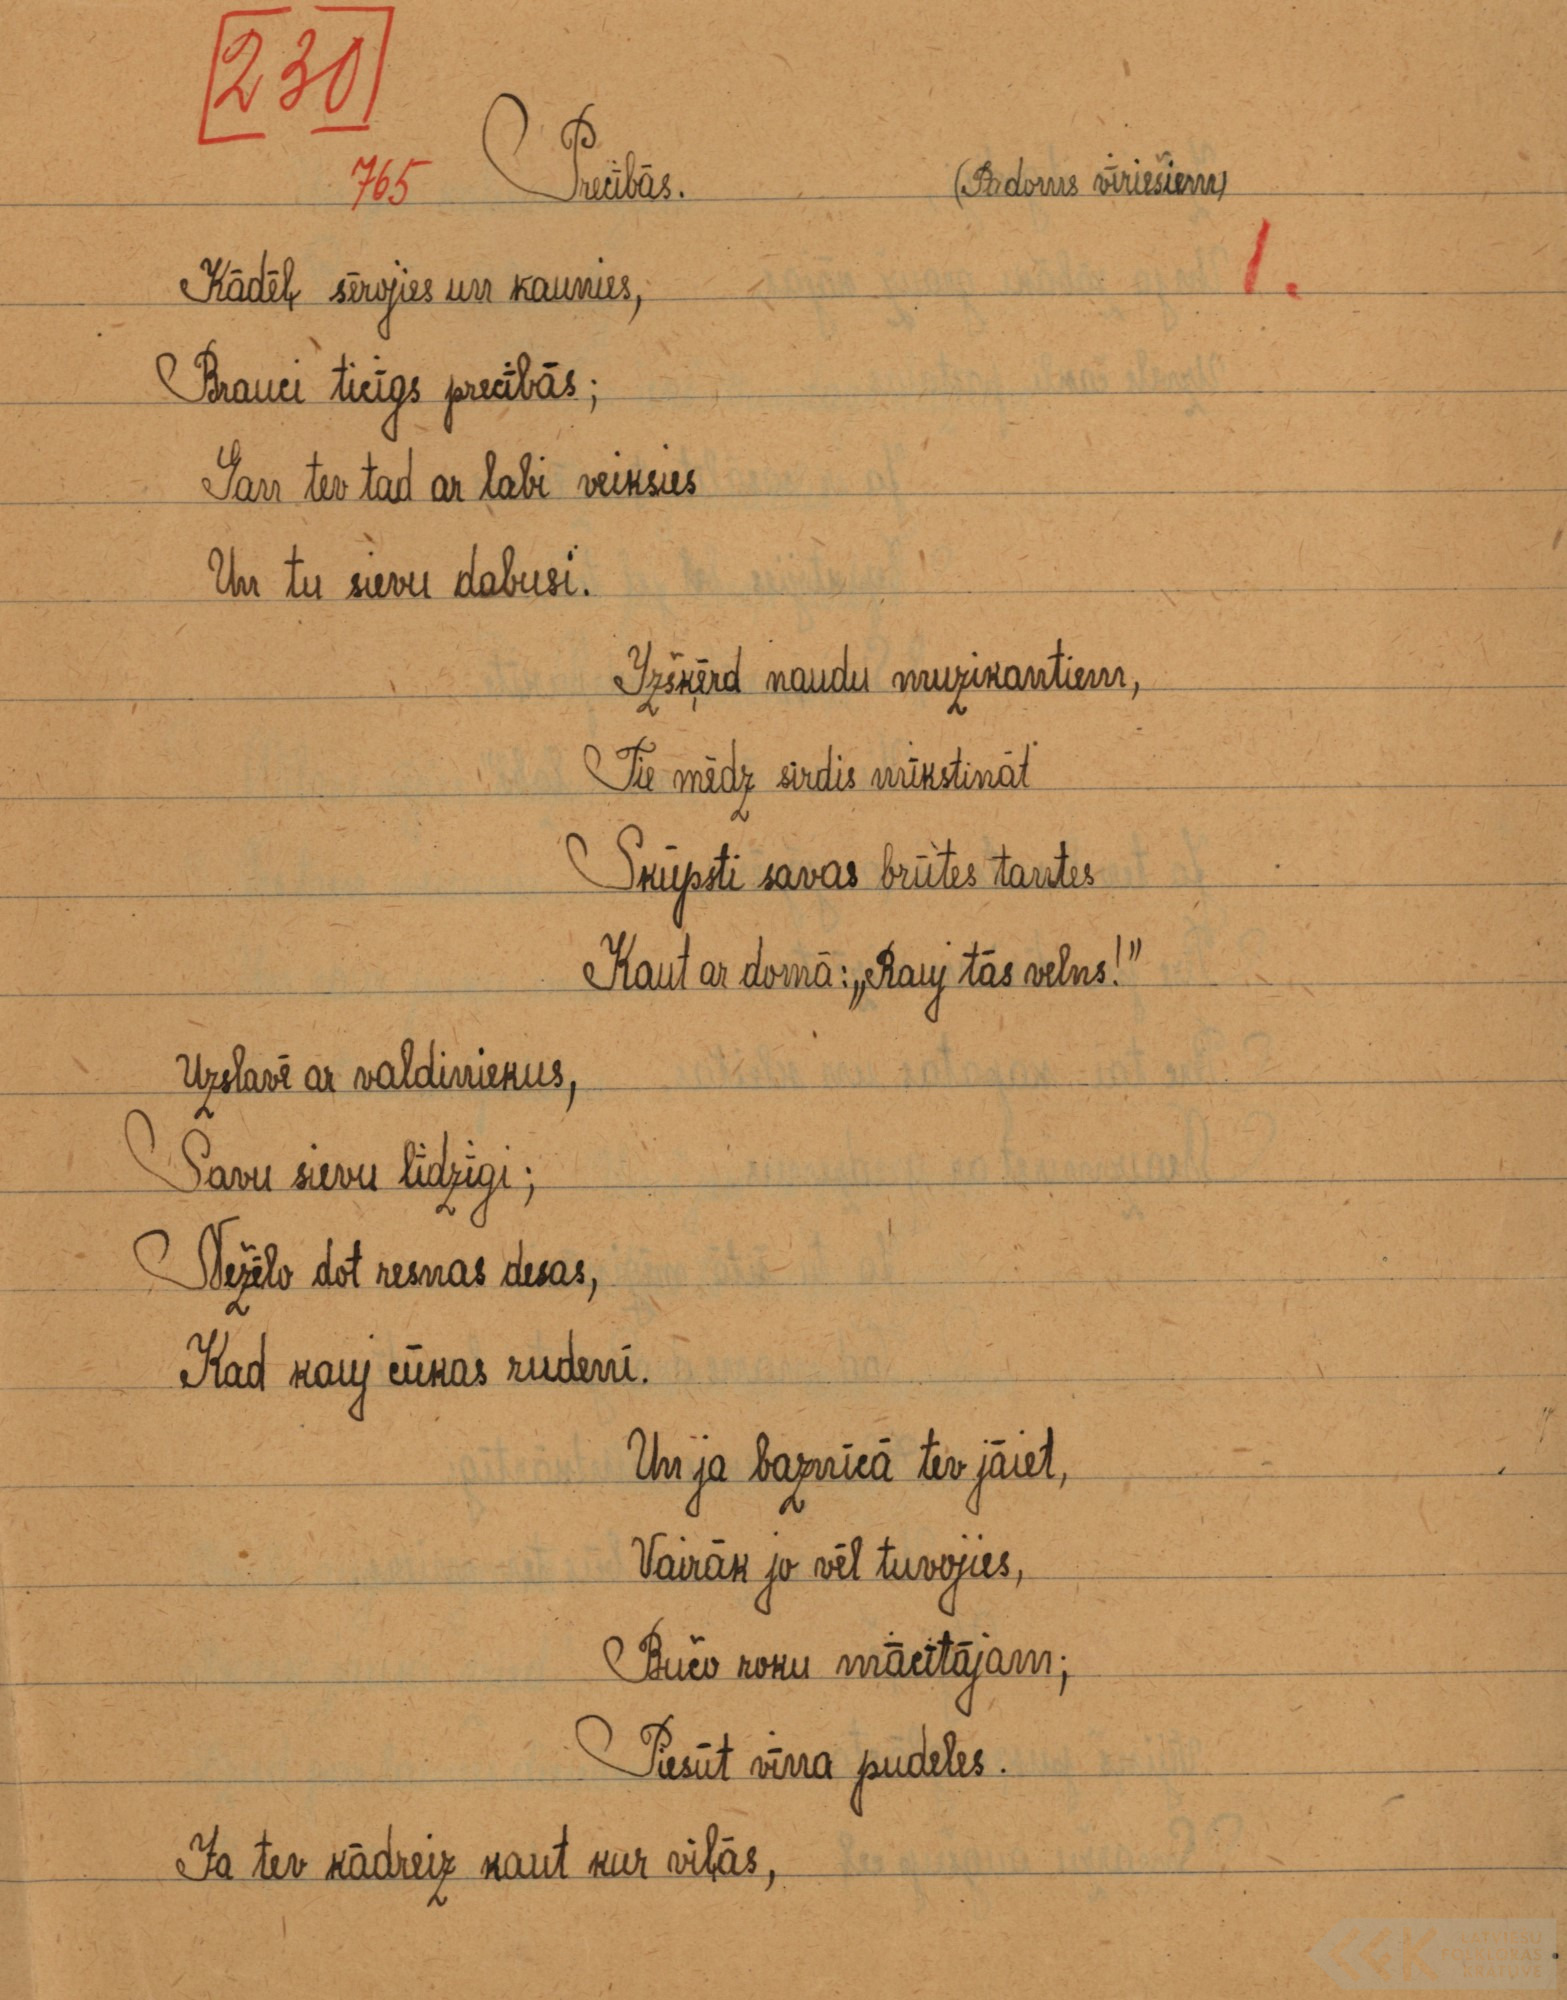 230
765 Precībās. (Padoms vīriešiem)
1.
Kādēļ sērojies un kaunies,
Brauci ticīgs precībās;
Gan tev tad ar labi veiksies
Un tu sievu dabusi.
Izšķērd naudu muzikantiem,
Tie mēdz sirdis mīkstināt
Skūpsti savas brūtes tantes
Kaut ar domā: „Rauj tās velns!”
Uzslavē ar valdiniekus,
Savu sievu līdzīgi;
Nežēlo dot resnas desas,
Kad kauj cūkas rudenī.
Un ja baznīcā tev jāiet,
Vairāk jo vēl tuvojies,
Bučo roku mācītājam;
Piesūt vīna pudeles.
Ja tev kādreiz kaut kur viļās,
LFK
LATVIEŠU
FOLKLORAS
KRĀTUVE